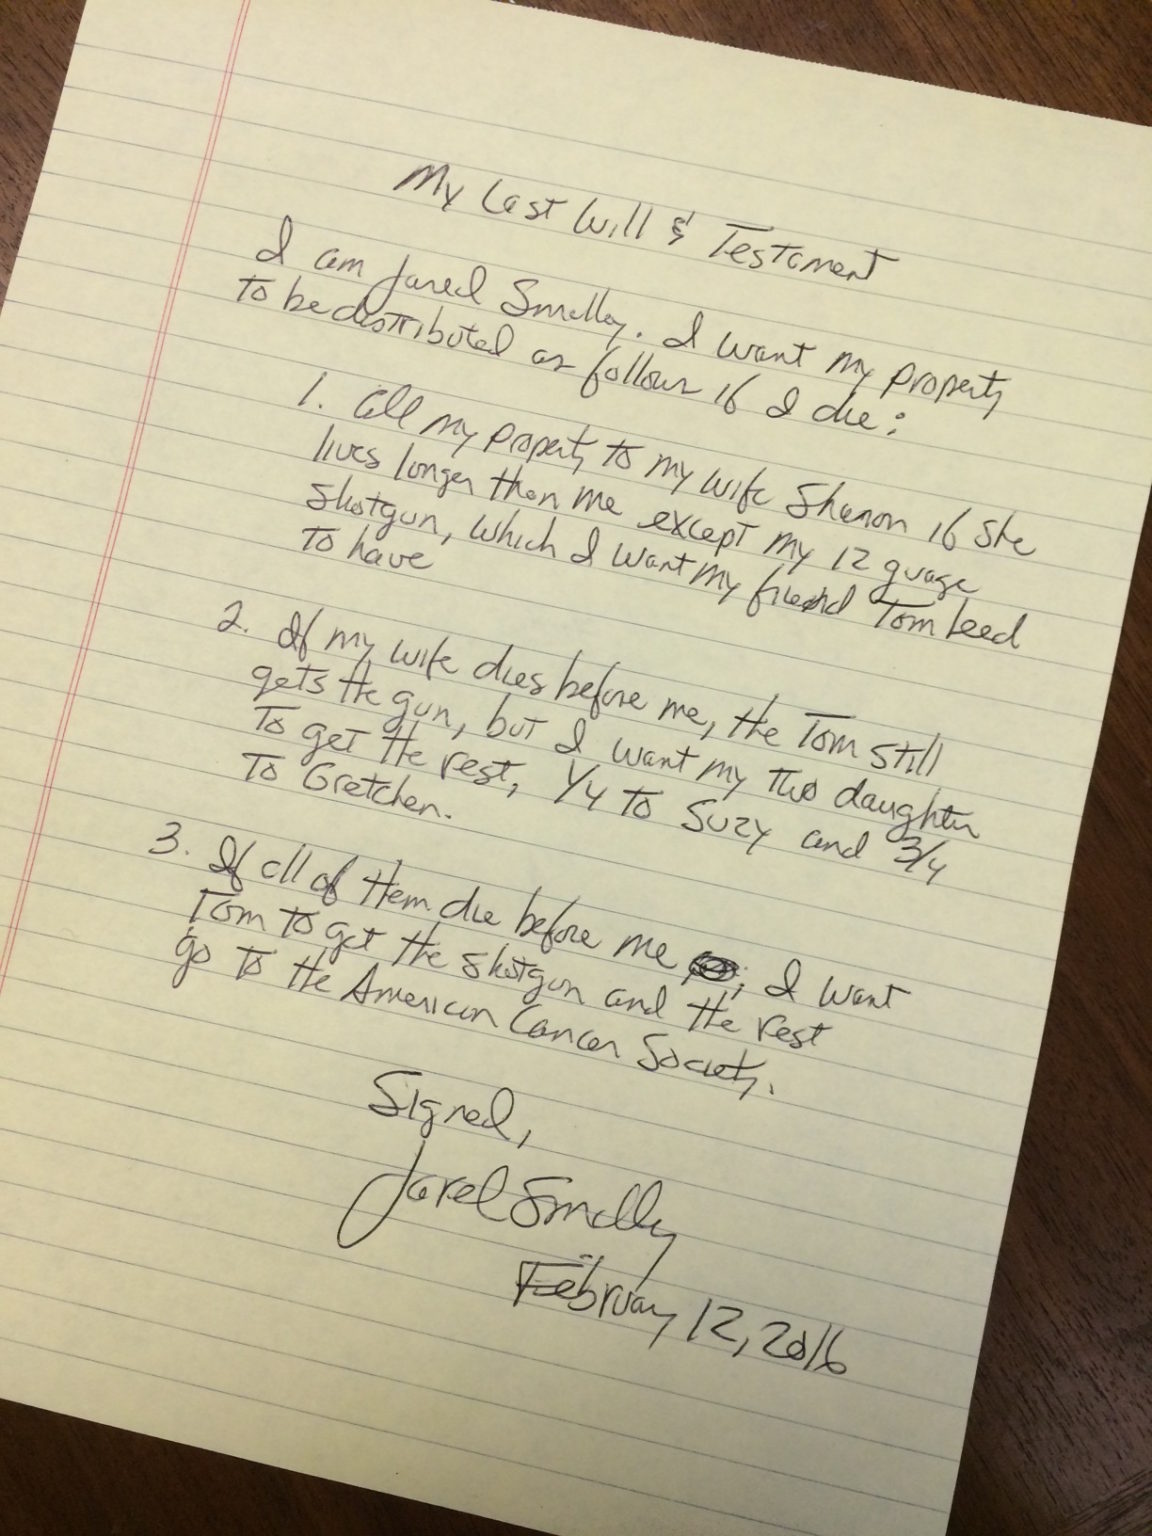 My Last Will & Testament
I am Jared Smalley. I want my property
to be distributed as follows if I die:
1. All my property to my wife Shanon if she
lives longer than me except my 12 guage
shotgun, which I want my friend Tom Leed
to have
2. If my wife dies before me, the Tom still
gets the gun, but I want my two daughters
to get the rest, 1/4 to Suzy and 3/4
to Gretchen.
3. If all of them die before me, I want
Tom to get the shotgun and the rest
go to the American Cancer Society.
Signed,
Jared Smalley
February 12, 2016